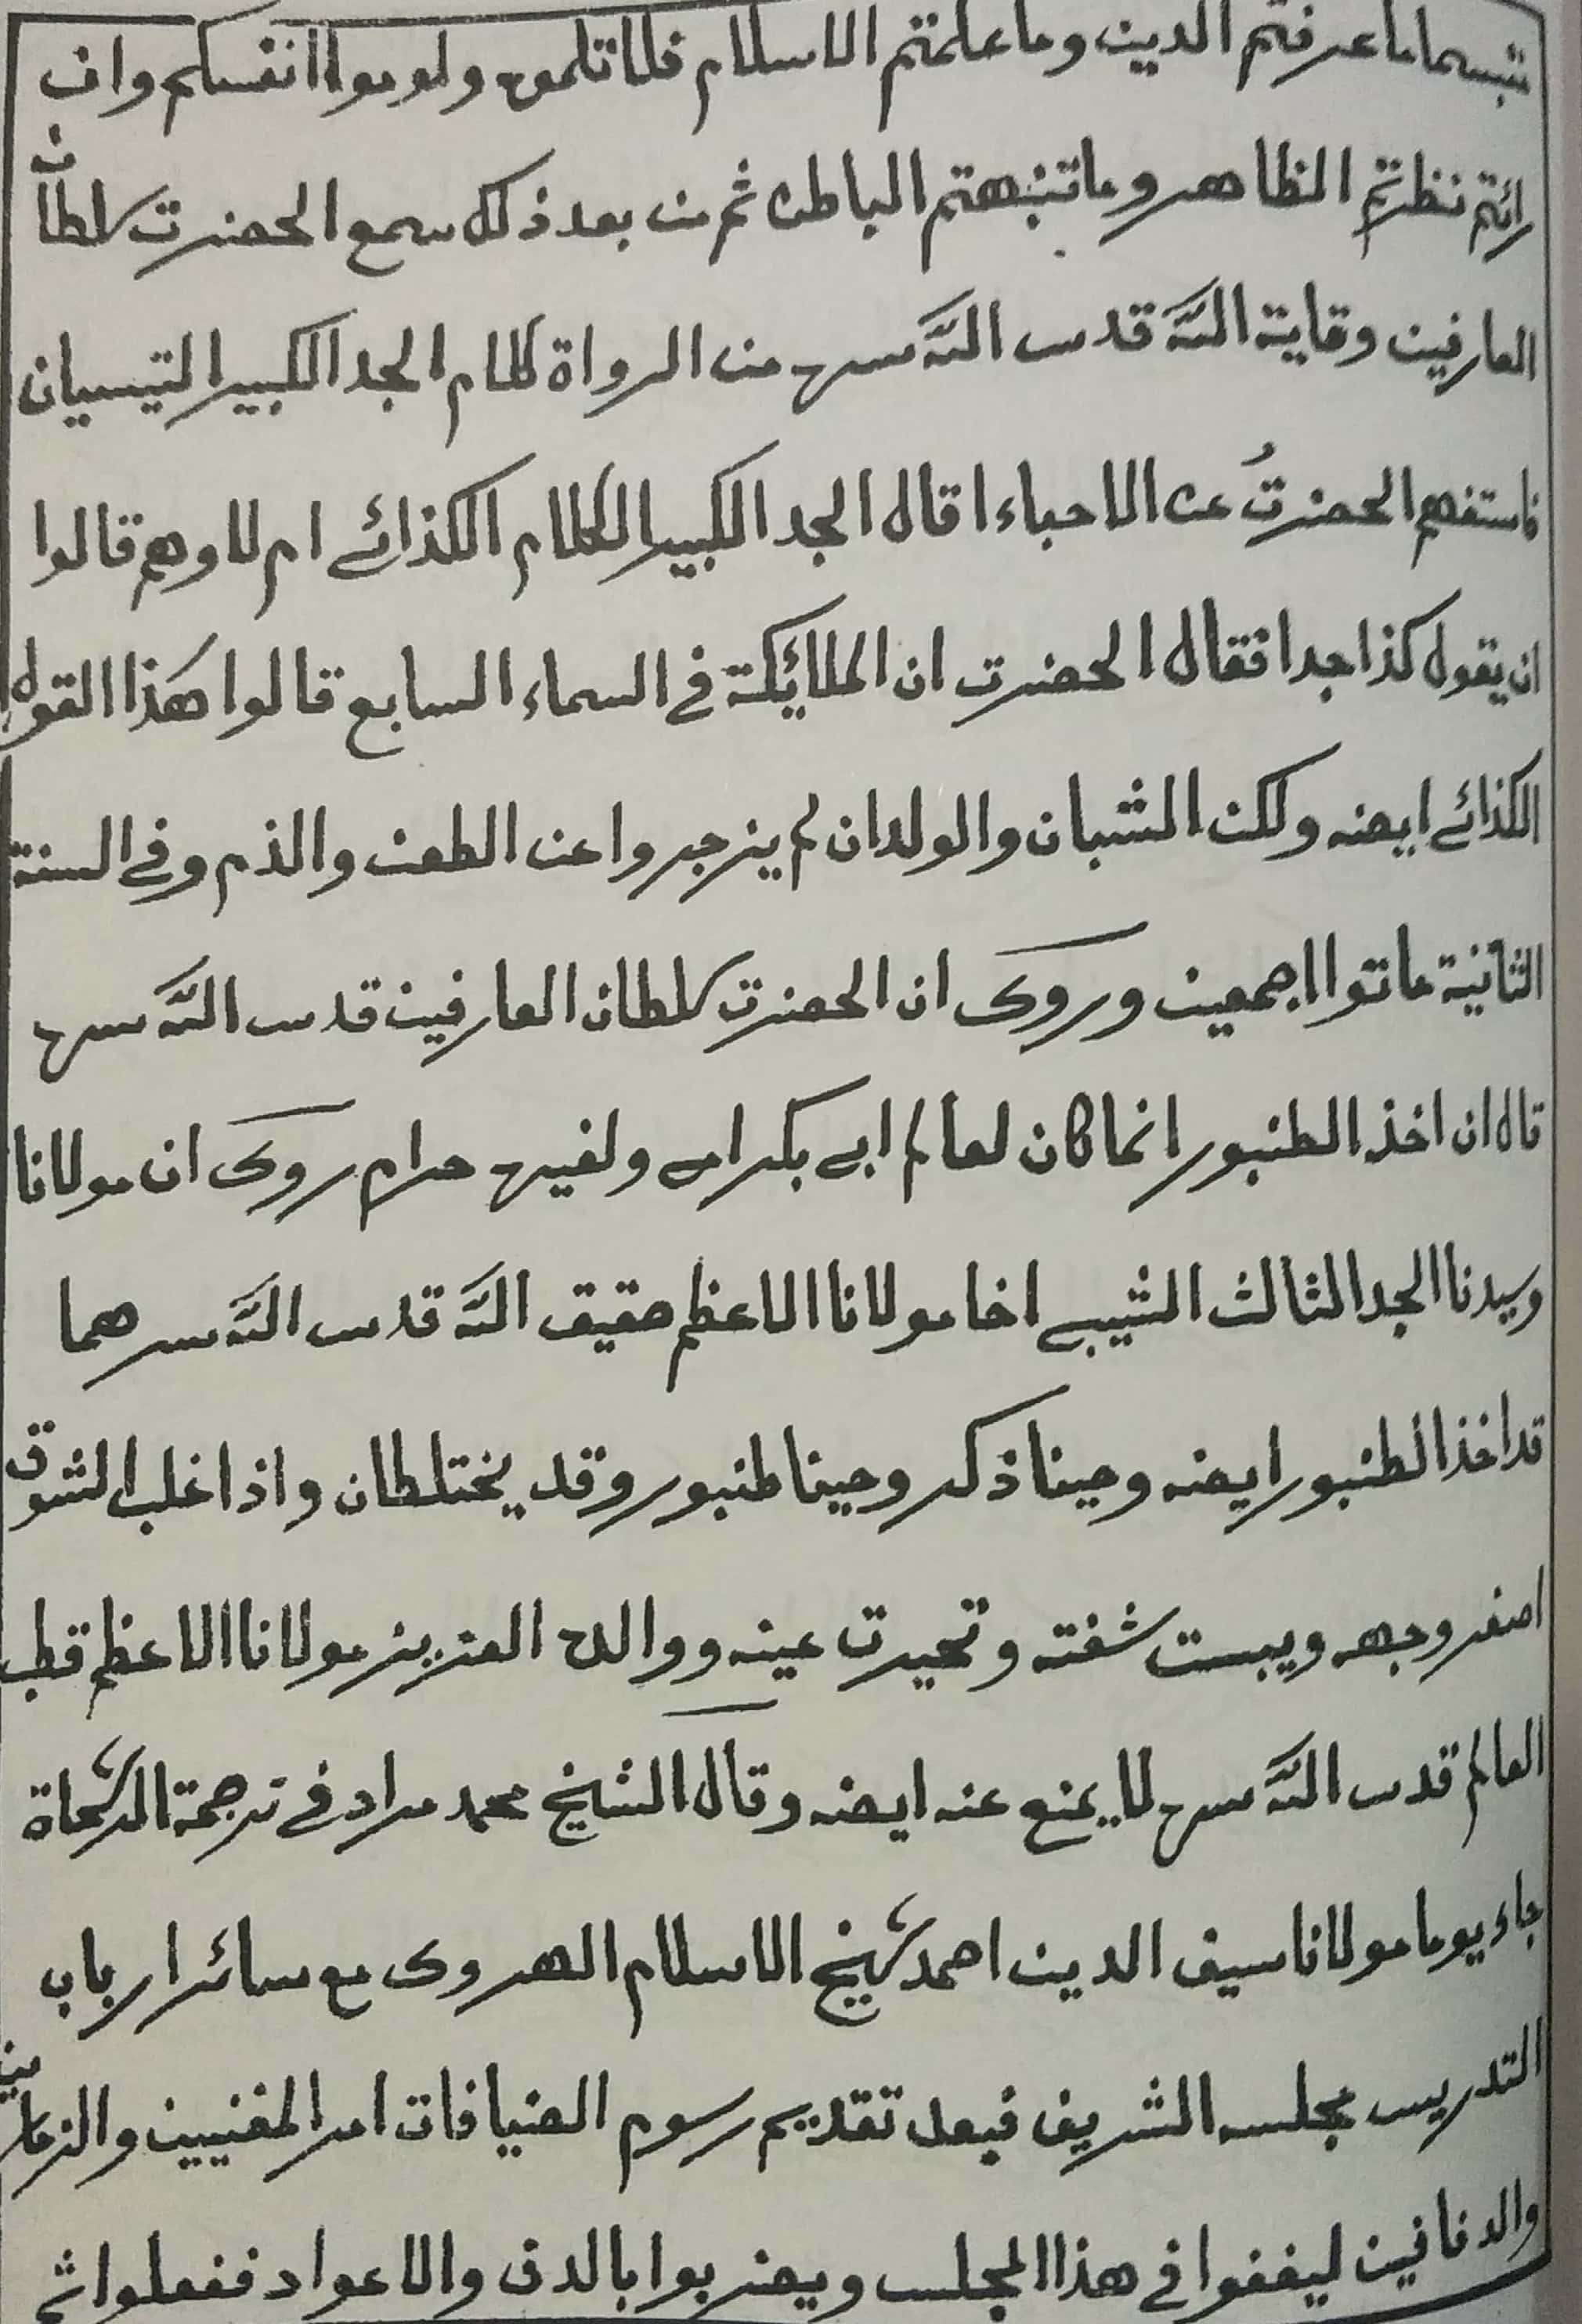 تبسما ما عرفتم الدين وما علمتم الاسلام فلا تلمون ولوموا انفسكم وان
رائتم نظرتم الظاهر وما تنبهتم الباطن ثم من بعد ذلك سمع الحضرت سلطان
العارفين وقاية الله قدس الله سره من الرواة كلام الجد الكبير التيسيان
فاستفهم الحضرتُ عن الاحباء اقال الجد الكبير الكلام الكذائے ام لا وهم قالوا
ان يقول كذا جدا فقال الحضرت ان الملائكة في السماء السابع قالوا هكذا القول
الكذائے ايضه ولكن الشبان والولدان لم ينزجروا عن الطعن والذم وفي السنة
الثانية ماتوا اجمعين وروى ان الحضرت سلطان العارفين قدس الله سره
قال ان اخذ الطنبور انما كان لعالم ابى بكرا ولغيره حرام روى ان مولانا
وسيدنا الجد الثالث الشيبے اخا مولانا الاعظم حقيق الله قدس الله سرهما
قد اخذ الطنبور ايضه وحينا ذكر وحينا طنبور وقد يختلطان واذا غلب الشوق
اصفر وجهه ويبست شفته وتحيرت عينه ووالده العزيز مولانا الاعظم قطب
العالم قدس الله سره لا يمنع عنه ايضه وقال الشيخ محمد مراد في ترجمة الرشحاة
جاء يوما مولانا سيف الدين احمد شيخ الاسلام الهروى مع سائر ارباب
التدريس مجلسه الشريف فبعد تقديم رسوم الضيافات امر المغنيين والزمارين
والدفافين ليغنوا في هذا المجلس ويضربوا بالدف والاعواد ففعلوا ثم